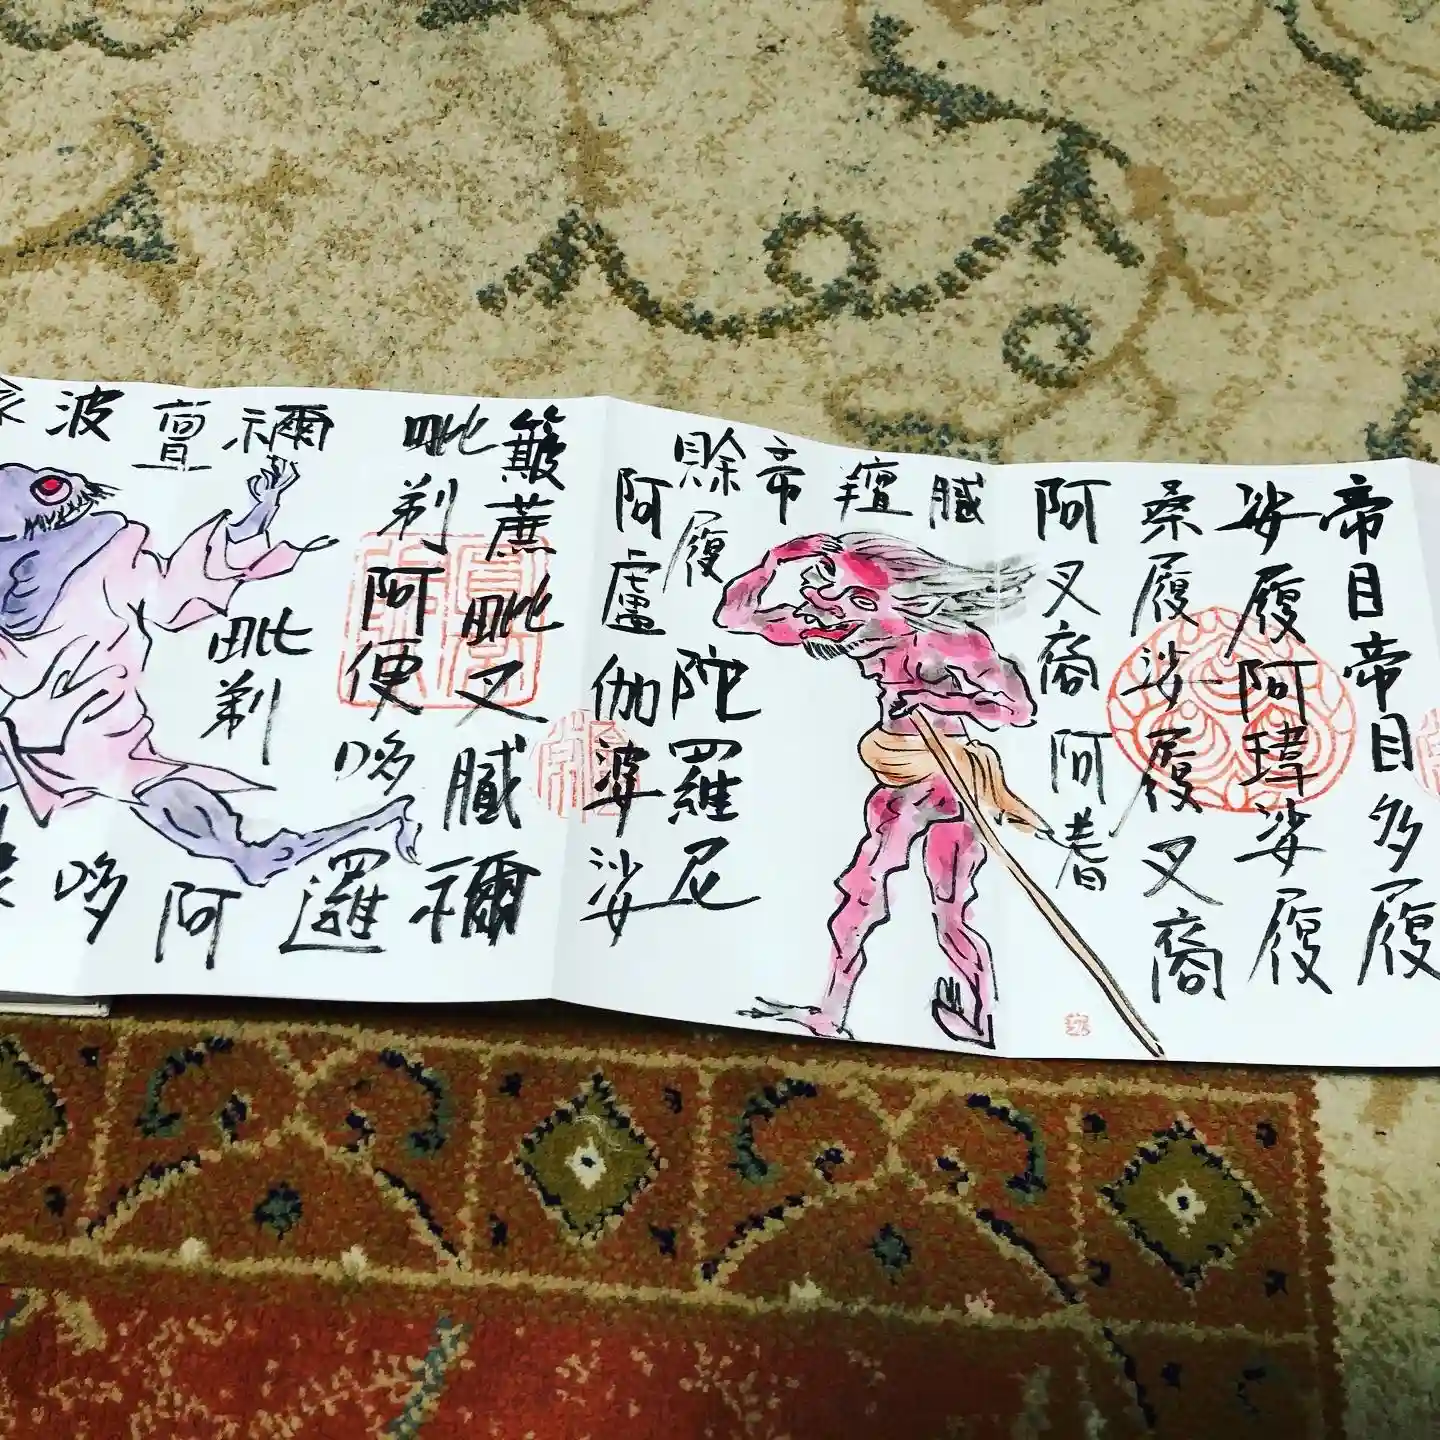 帝目帝目多履
娑履阿瑋娑履
桑履娑履叉裔
阿叉裔阿耆
膩
羶
帝
賒履陀羅尼
阿盧伽婆娑
簸蔗毗叉膩禰
毗剃阿便哆
邏
禰
毗剃
阿
亶
哆
波